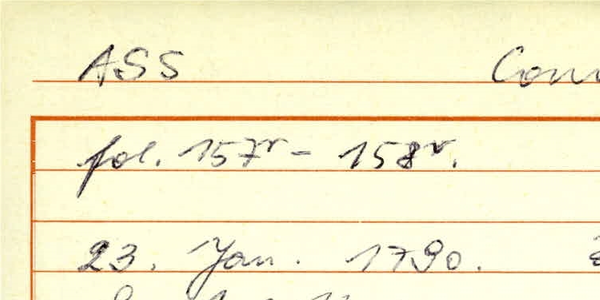 ASS
fol. 157r - 158v.
23. Jan. 1790.